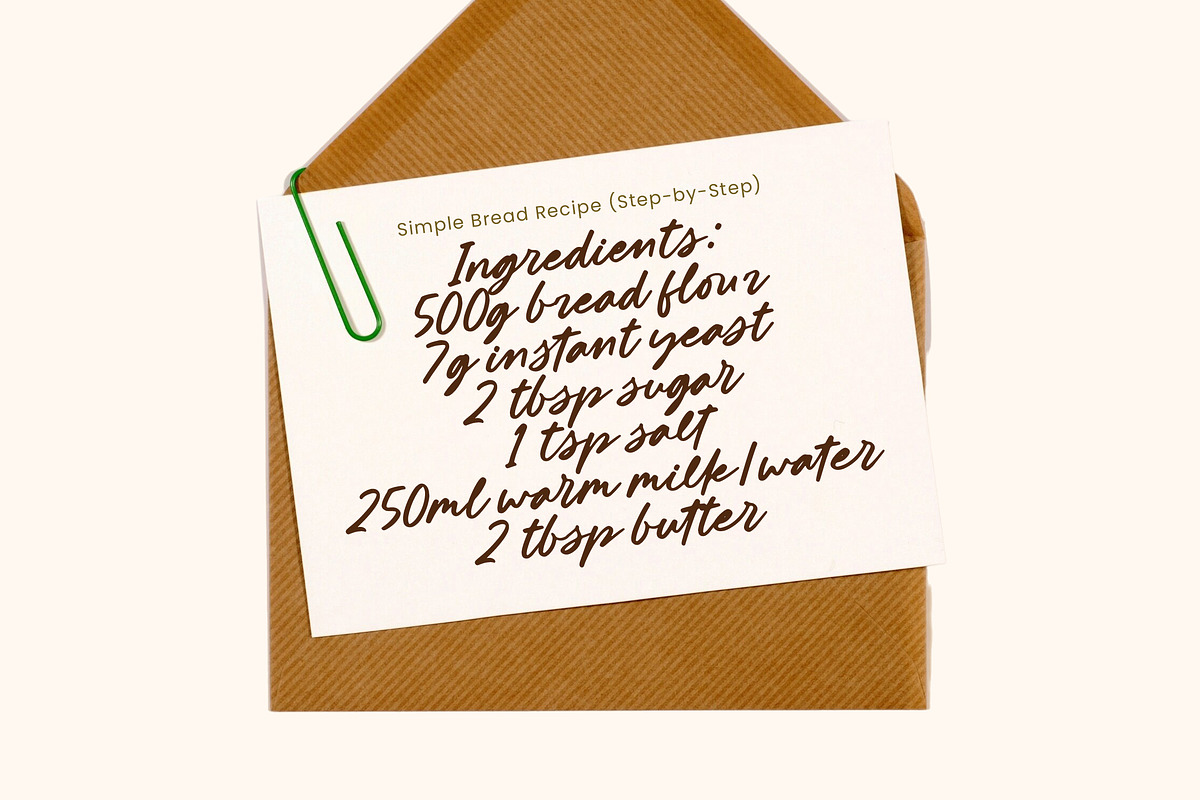 Simple Bread Recipe (Step-by-Step)
Ingredients:
500g bread flour
7g instant yeast
2 tbsp sugar
1 tsp salt
250ml warm milk/water
2 tbsp butter